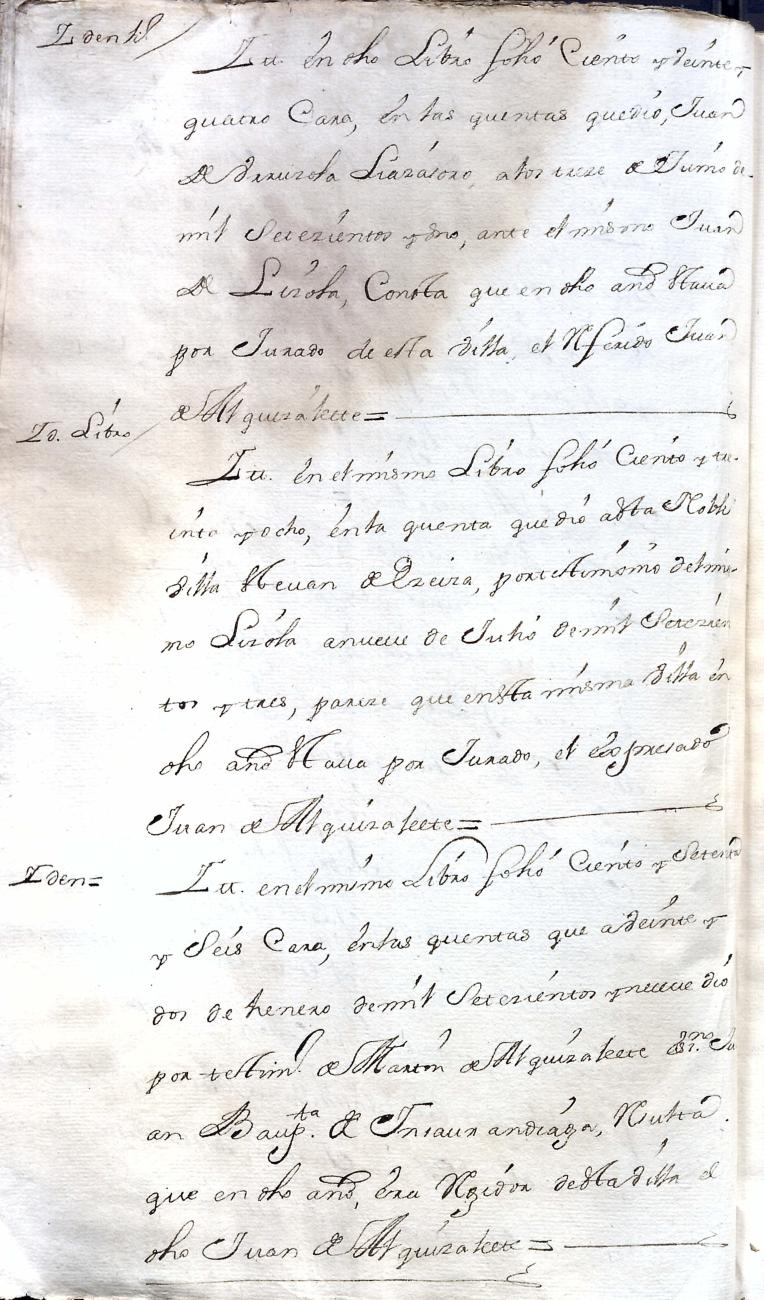 Iden lº
Itt. en dho Libro folio Ciento y veinte y
quatro Cara, en las quentas que dio, Juan
de Urruzola Liazasoro, a los treze de Junio de
mil Setezientos y uno, ante el mismo Juan
de Lizola, Consta que en dho año Estava
por Jurado de esta Villa, el Referido Juan
de Alquizalete=
Id. Libro
Itt. en el mismo Libro folio Ciento y tre-
inta y ocho, en la quenta que dio a esta Noble
Villa Estevan de Ezeiza, por testimonio del mis-
mo Lizola a nueve de Julio de mil Setezien
tos y tres, pareze que en esta misma Villa en
dho año Estava por Jurado, el expresado
Juan de Alquizaleete=
Iden=
Itt. en el mismo Libro folio Ciento y Setenta
y Seis Cara, en las quentas que a veinte y
dos de henero de mil Setezientos y nueve dio
por testimº de Martin de Alquizaleete Essno Ju
an Baupta. de Insaurandiaga, Rsulta
que en dho año, era Rgidor de esta Villa el
dho Juan de Alquizaleete=